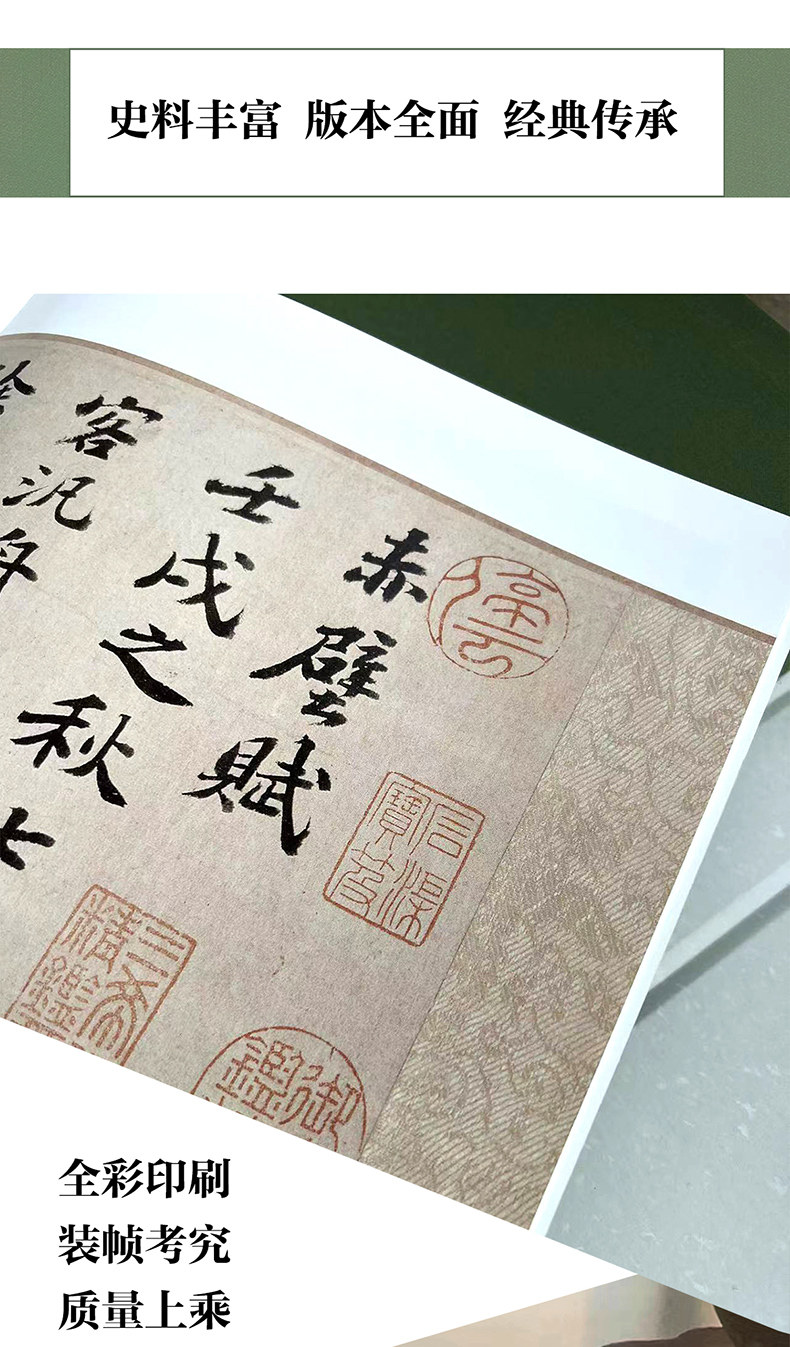 史料丰富 版本全面 经典传承
赤壁賦
壬戌之秋七
客汎舟
停雲
石渠寶笈
三希
精鑑
御
鑑
全彩印刷
装帧考究
质量上乘